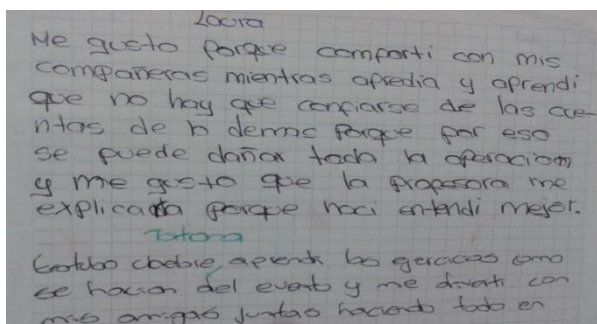 Laura
Me gusto porque comparti con mis
compañeras mientras apredia y aprendi
que no hay que confiarse de las cue-
ntas de lo demas porque por eso
se puede dañar toda la operacion
y me gusto que la profesora me
explicara porque haci entendi mejor.
Tatiana
chebre aprendi los gercicios como
se hacian del evento y me diverti con
mis amigas juntas haciendo todo en